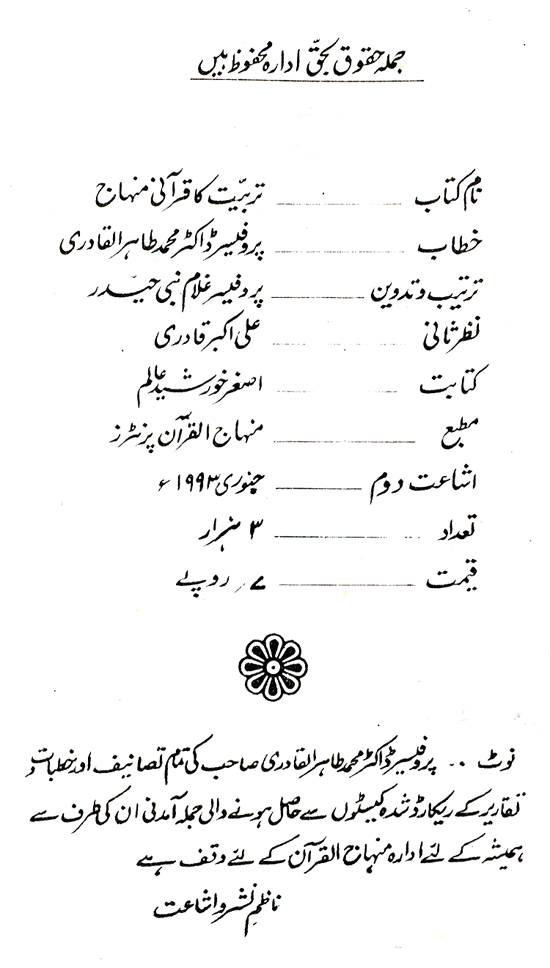 جملہ حقوق بحقّ ادارہ محفوظ ہیں
نام کتاب ـــــــ تربیّت کا قرآنی منہاج
خطاب ـــــــ پروفیسر ڈاکٹر محمد طاہر القادری
ترتیب و تدوین ـــــــ پروفیسر غلام نبی حیدر
نظرثانی ـــــــ علی اکبر قادری
کتابت ـــــــ اصغر خورشید عالم
مطبع ـــــــ منہاج القرآن پرنٹرز
اشاعت دوم ـــــــ جنوری ۱۹۹۳ء
تعداد ـــــــ ۳ ہزار
قیمت ـــــــ ۷/ روپے
نوٹ .. پروفیسر ڈاکٹر محمد طاہر القادری صاحب کی تمام تصانیف اور خطبات و
تقاریر کے ریکارڈ شدہ کیسٹوں سے حاصل ہونے والی جملہ آمدنی ان کی طرف سے
ہمیشہ کے لئے ادارہ منہاج القرآن کے لئے وقف ہے
ناظمِ نشرو اشاعت